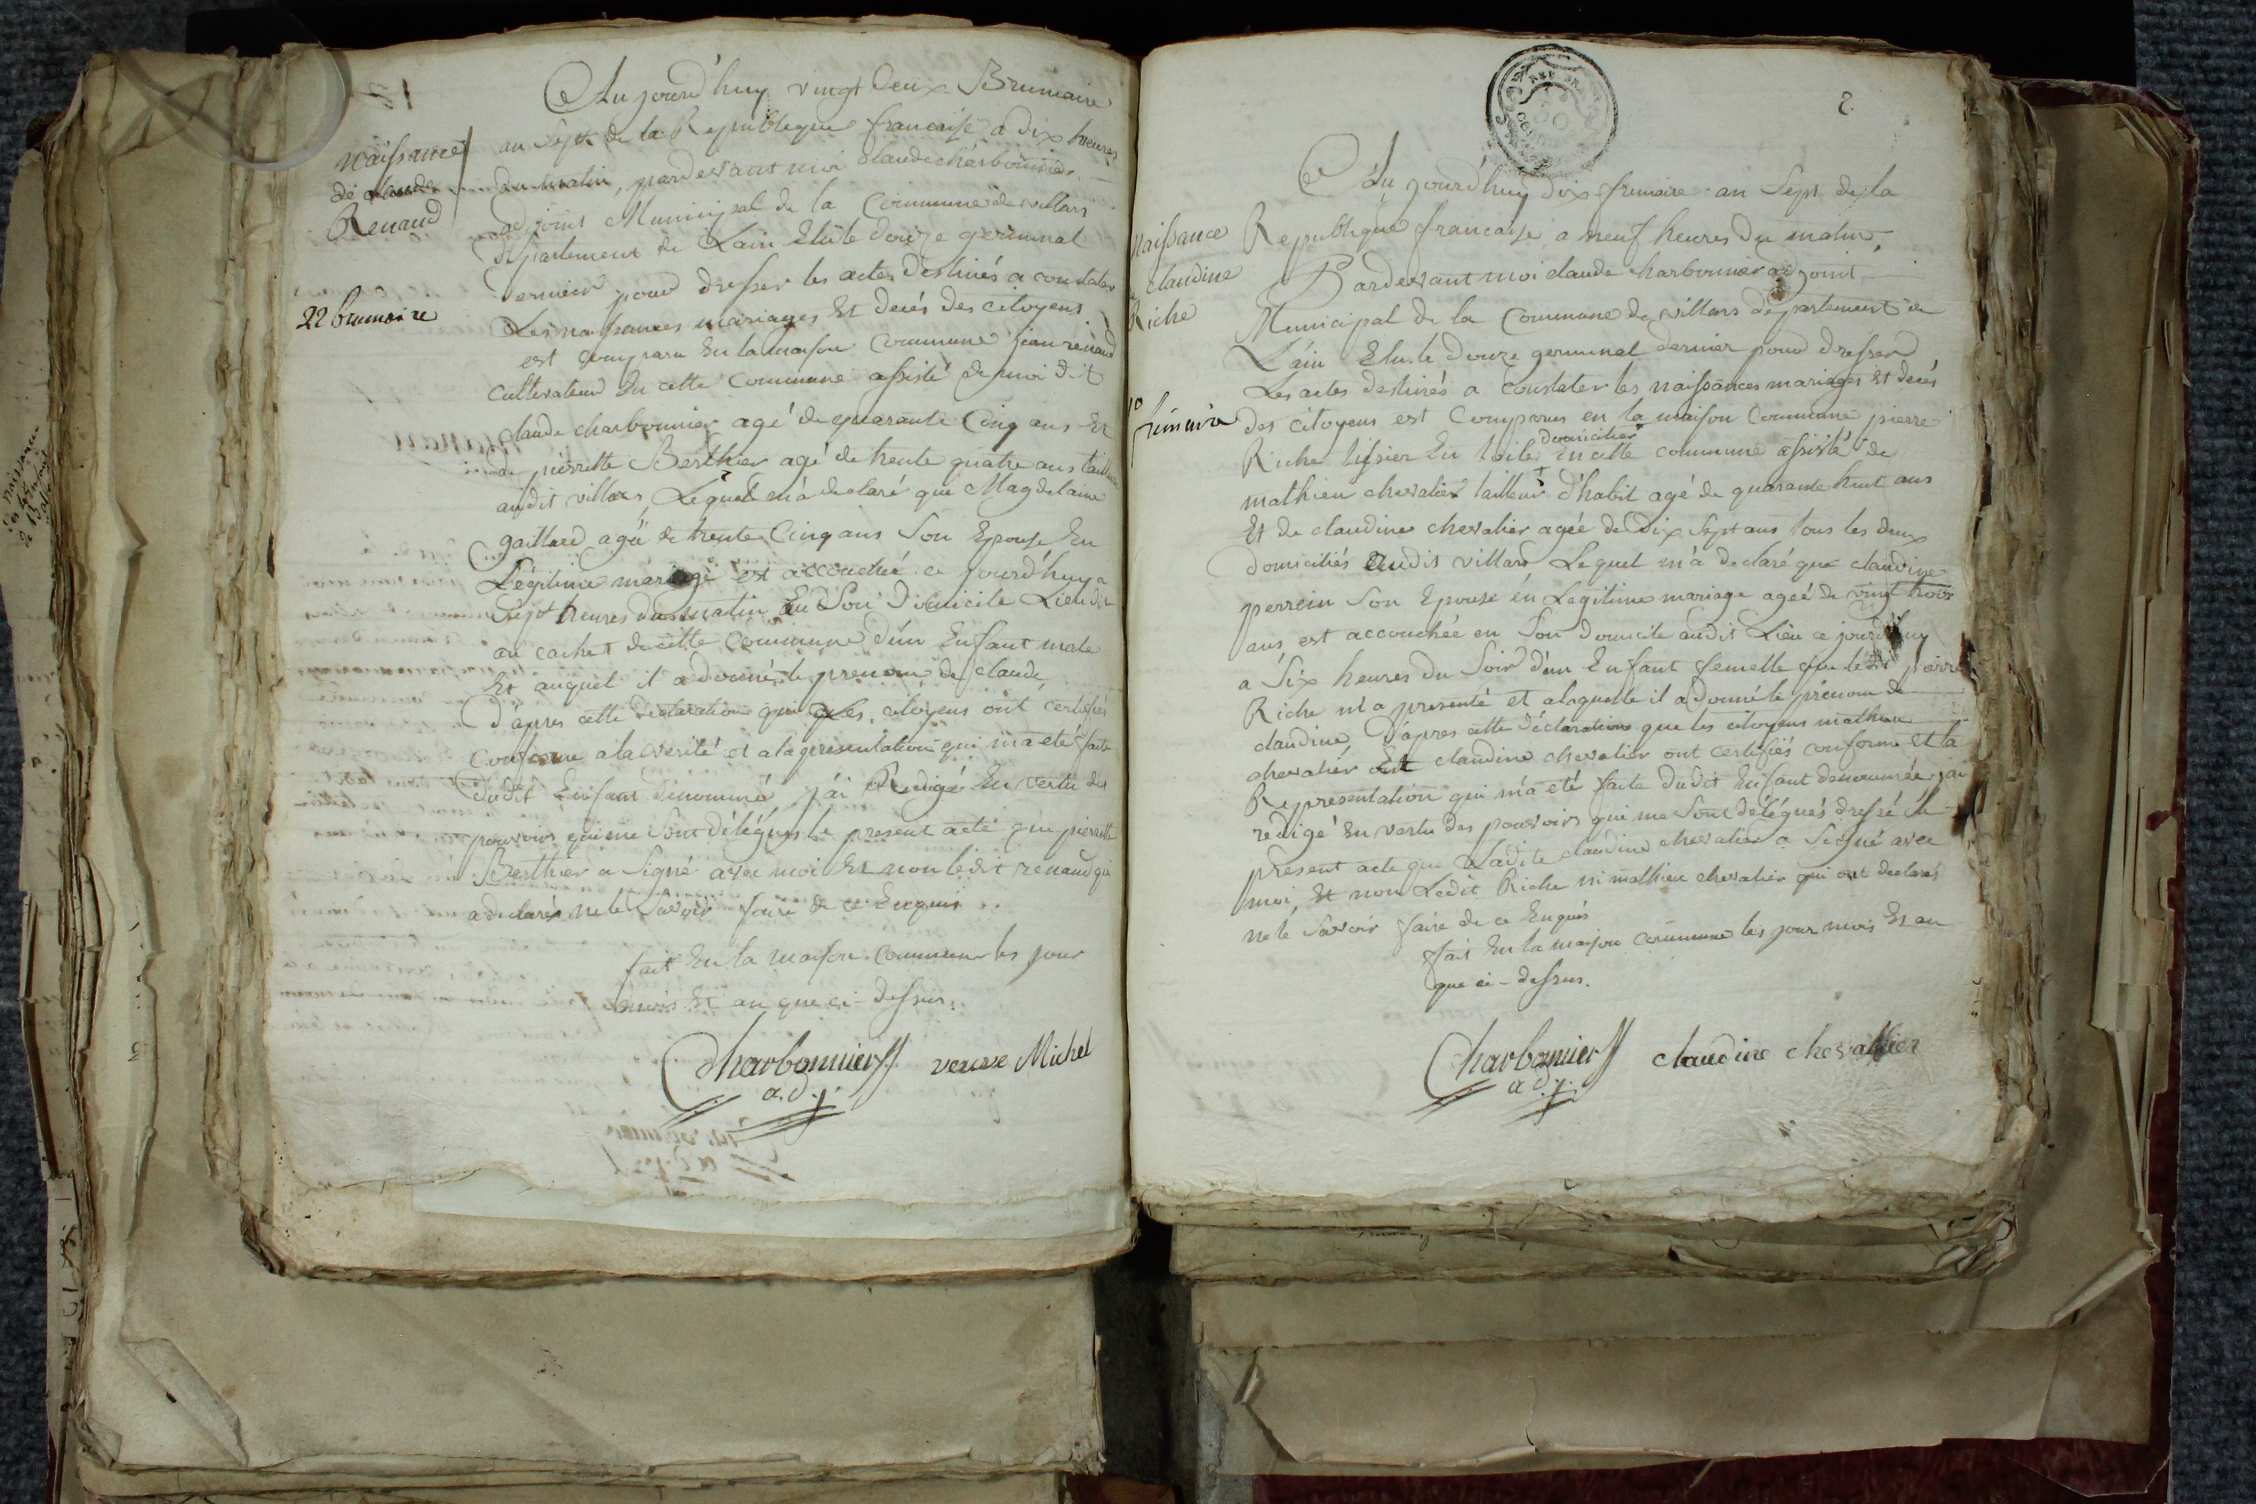 Aujourd'huy vingt deux Brumaire
naissance
de claude
Renaud
22 brumaire
an Sept de la Republique francaise a dix heures
du matin, pardevant moi Claude charbonnier
adjoint Municipal de la Commune de villars
departement de Lain Elu le douze germinal
dernier pour dresser les actes destinés a constater
Les naissances mariages Et decés des citoyens
est comparu En la maison Commune jean renaud
cultivateur En cette Commune assisté de moi dit
claude charbonnier agé de quarante Cinq ans Et
de pierrette Berthier agé de trente quatre ans
audit villars, Lequel m'a declaré que Magdelaine
gaillard agée de trente Cinq ans Son Epouse En
Légitime mariage est accouchée ce jourd'huy a
Sept heures du matin En Son Domicile Lieu dit
au cachet de cette Commune d'un Enfant male
Et auquel il a donné le prenom de claude,
d'apres cette declaration que les citoyens ont certifiés
Conforme a la verité et a la presentation qui m'a eté faite
dudit Enfant denommé, j'ai Redigé En vertu des
pouvoirs qui me Sont délégués le present acte que pierrette
Berthier a Signé avec moi Et non ledit renaud qui
a declarés ne le Savoir faire de ce Enquis
fait En la maison Commune les jour
mois Et an que ci-dessus.
Charbonnier veuve Michel
adj.
2
Aujourd'huy dix frimaire an Sept de la
naissance
claudine
Riche
10
frimaire
Republique francaise a neuf heures du matin,
Pardevant moi claude charbonnier adjoint
Municipal de la Commune de villars departement de
L'ain Elu le Douze germinal dernier pour dresser
Les actes destinés a Constater les naissances mariages Et decés
des citoyens est Comparus en la maison Commune pierre
domicilié
Riche tissier En toile En cette commune assisté de
mathieu chevalier tailleur d'habit agé de quarante huit ans
Et de claudine chevalier agée de dix Sept ans tous les deux
domiciliés audit villars Lequel m'a declaré que claudine
perrein Son Epouse en Legitime mariage ageé de vingt trois
ans est accouchée en Son domicile audit Lieu ce jourd'huy
a Six heures du Soir d'un Enfant femelle que ledit pierre
Riche m'a presenté et a laquelle il a donné le prénom de
claudine D'apres cette déclaration que les citoyens mathieu
chevalier Et claudine chevalier ont certifiés conforme Et la
Representation qui m'a eté faite dudit Enfant denommée j'ai
redigé En vertu des pouvoirs qui me Sont delégués dressé le
présent acte que Ladite claudine chevalier a Signé avec
moi, Et non Ledit Riche ni mathieu chevalier qui ont declarés
ne le Savoir faire de ce Enquis
fait En la maison commune les jour mois Et an
que ci-dessus.
Charbonnier claudine chevallier
adj.